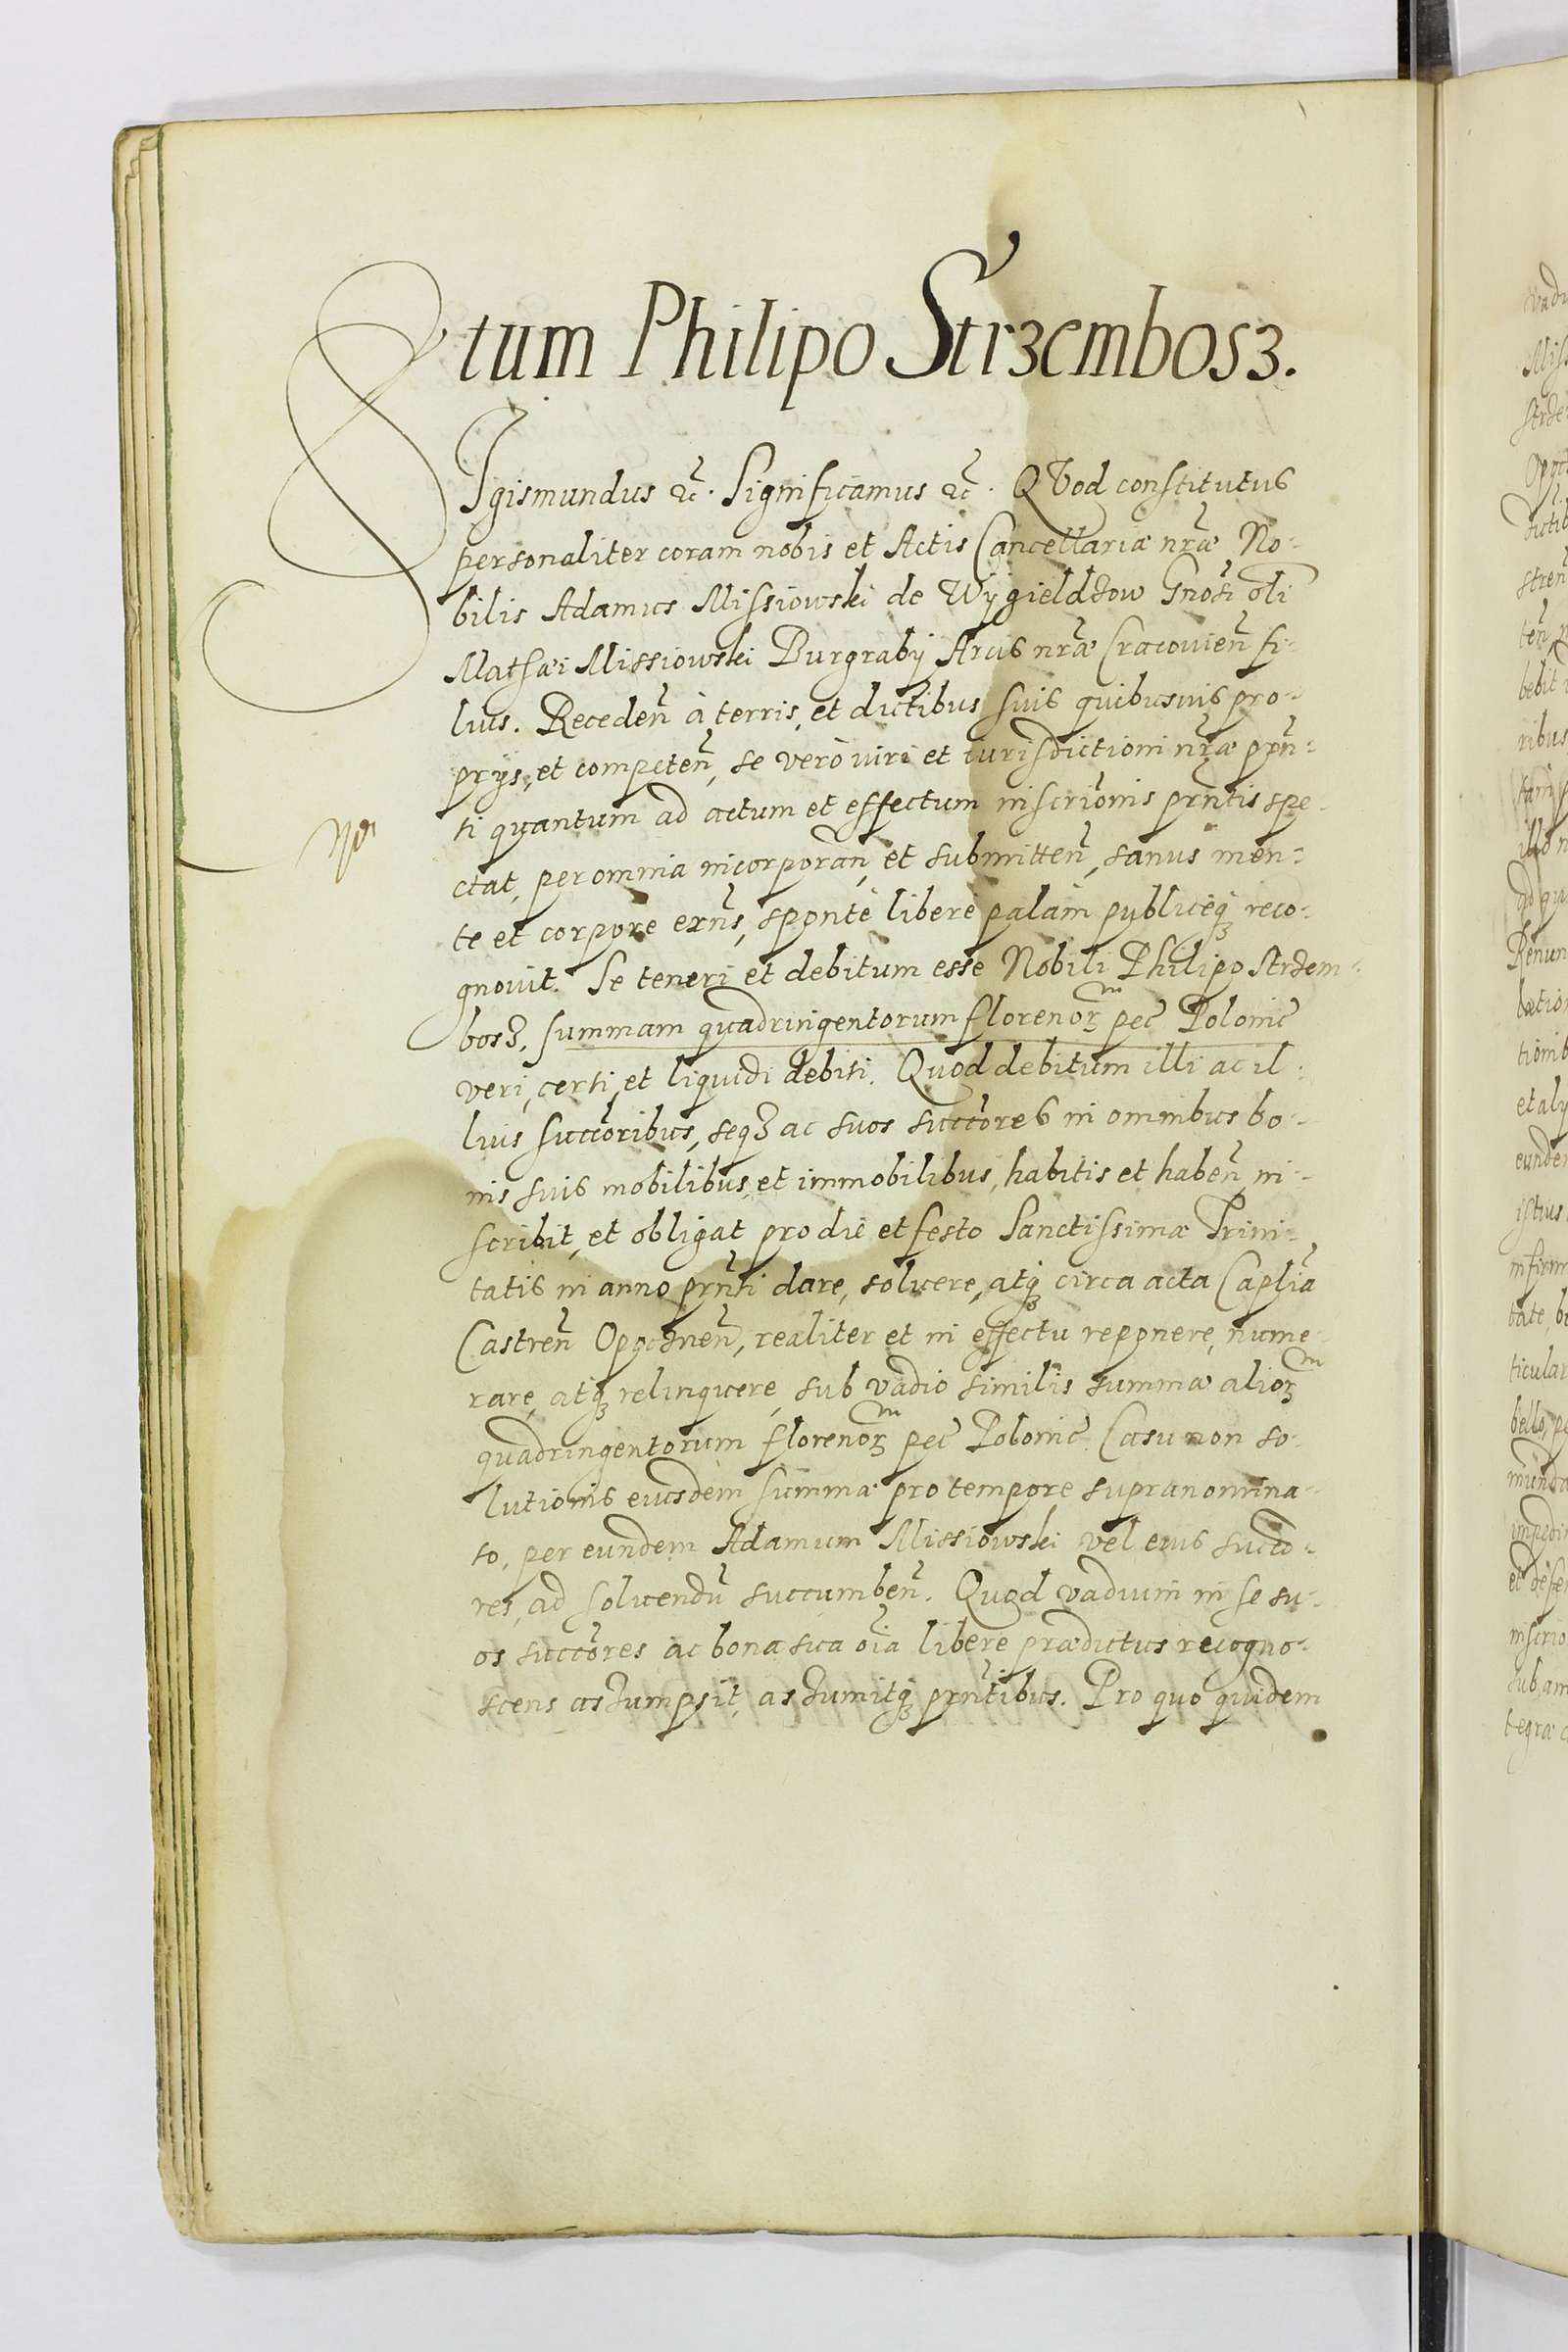 tum Philipo Strzembosz.
SIgismundus &c̃. Significamus &c̃. QVod constitutus
personaliter coram nobis et Actis Cancellariæ nr̃æ No-
bilis Adamus Missiowski de Wygieldzow Gnosi oli
Mathæi Missiowski Burgrabij Arcis nr̃æ Cracovien̄ fi-
lius. Receden̄ à terris, et dictibus suis quibusvis pro-
prijs, et competen̄, se verò iuri et iurisdictioni nr̃æ prñ-
ti quantum ad actum et effectum inscrionis prñtis spe-
ctat, per omnia incorporan̄, et submitten̄, sanus men-
te et corpore exñs, sponte libere palam publiceq3 reco-
gnovit. Se teneri et debitum esse Nobili Philipo Strzem-
bosz, summam quadringentorum florenorᵐ pec̃ Polonic̃
veri, certi, et liquidi debiti. Quod debitum illi ac il-
lius succoribus, seq3 ac suos succores in omnibus bo-
nis suis mobilibus, et immobilibus, habitis et haben̄ in-
scribit, et obligat pro die et festo Sanctissimæ Trini-
tatis in anno prñti dare, solvere, atq3 circa acta Caplia
Castren̄ Opocznen̄, realiter et in effectu reponere, nume-
rare, atq3 relinquere, sub vadio similis summæ aliorᵐ
quadringentorum florenorᵐ pec̃ Polonic̃. Casu non so-
lutionis eiusdem summæ pro tempore supranomina-
to, per eundem Adamum Missiowski vel eius succo-
res, ad solvendũ succumben̄. Quod vadium in se su-
os succores ac bona sua oĩa libere prædictus recogno-
scens assumpsit, assumitq3 prñtibus. Pro quo quidem